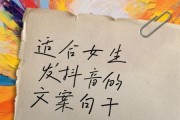 适合女生
发抖音的
文案句干